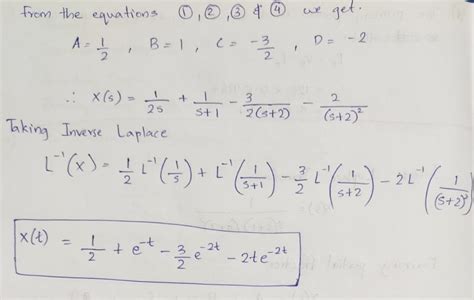 from the equations ①, ②, ③ & ④ we get.
A = 1/2 , B = 1 , C = -3/2 , D = -2
∴ X(s) = 1/2s + 1/s+1 - 3/2(s+2) - 2/(s+2)²
Taking Inverse Laplace
L⁻¹(X) = 1/2 L⁻¹(1/s) + L⁻¹(1/s+1) - 3/2 L⁻¹(1/s+2) - 2L⁻¹(1/(s+2)²
x(t) = 1/2 + e^-t - 3/2 e^-2t - 2te^-2t